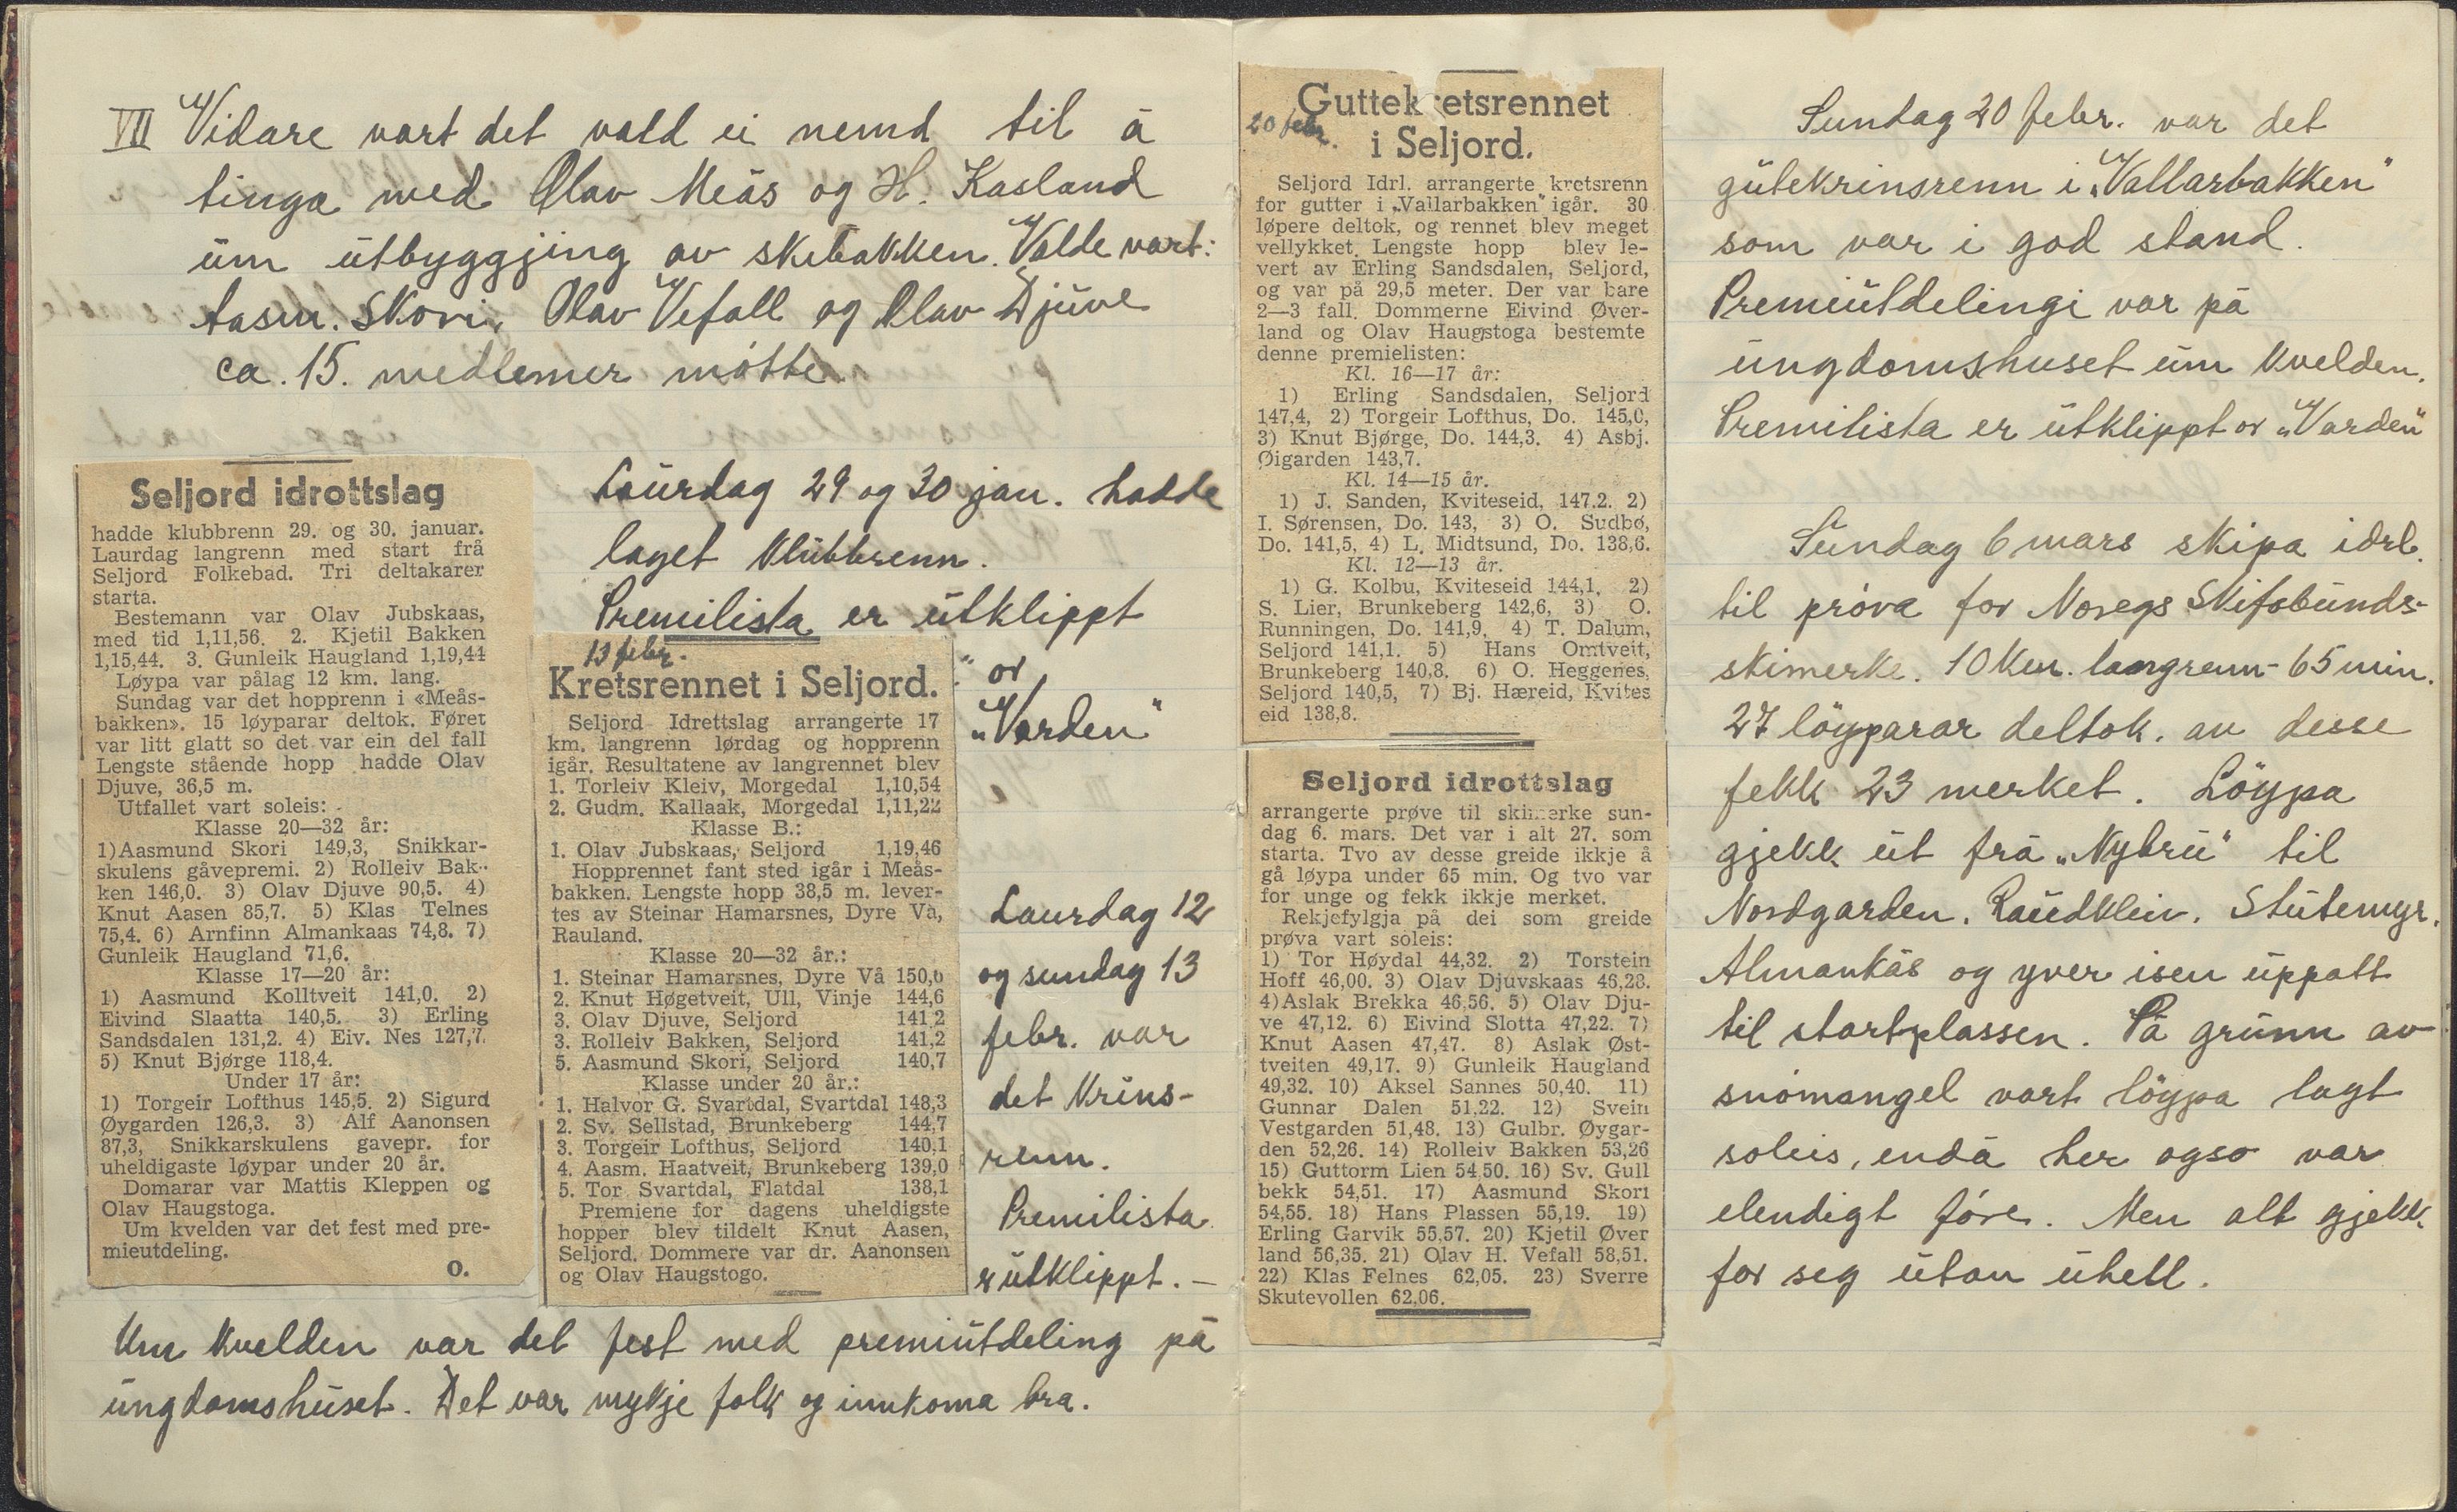 VII Vidare vart det vald ei nemd til å
tinga med Olav Meås og H. Kasland
um utbyggjing av skibakken. Valde vart:
Aasm. Skori, Olav Vefall og Olav Djuve
ca. 15. medlemer møtte.
Laurdag 29 og 30 jan. hadde
laget klubbrenn.
Premilista er utklippt
or
„Varden"
Seljord idrottslag
hadde klubbrenn 29. og 30. januar.
Laurdag langrenn med start frå
Seljord Folkebad. Tri deltakarer
starta.
Bestemann var Olav Jubskaas,
med tid 1,11,56. 2. Kjetil Bakken
1,15,44. 3. Gunleik Haugland 1,19,44
Løypa var pålag 12 km. lang.
Sundag var det hopprenn i «Meås-
bakken». 15 løyparar deltok. Føret
var litt glatt so det var ein del fall
Lengste stående hopp hadde Olav
Djuve, 36,5 m.
Utfallet vart soleis:
Klasse 20—32 år:
1) Aasmund Skori 149,3, Snikkar-
skulens gåvepremi. 2) Rolleiv Bak-
ken 146,0. 3) Olav Djuve 90,5. 4)
Knut Aasen 85,7. 5) Klas Telnes
75,4. 6) Arnfinn Almankaas 74,8. 7)
Gunleik Haugland 71,6.
Klasse 17—20 år:
1) Aasmund Kolltveit 141,0. 2)
Eivind Slaatta 140,5. 3) Erling
Sandsdalen 131,2. 4) Eiv. Nes 127,7.
5) Knut Bjørge 118,4.
Under 17 år:
1) Torgeir Lofthus 145,5. 2) Sigurd
Øygarden 126,3. 3) Alf Aanonsen
87,3, Snikkarskulens gavepr. for
uheldigaste løypar under 20 år.
Domarar var Mattis Kleppen og
Olav Haugstoga.
Um kvelden var det fest med pre-
mieutdeling.
O.
13 febr.
Kretsrennet i Seljord.
Seljord Idrettslag arrangerte 17
km. langrenn lørdag og hopprenn
igår. Resultatene av langrennet blev
1. Torleiv Kleiv, Morgedal 1,10,54
2. Gudm. Kallaak, Morgedal 1,11,22
Klasse B.:
1. Olav Jubskaas, Seljord 1,19,46
Hopprennet fant sted igår i Meås-
bakken. Lengste hopp 38,5 m. lever-
tes av Steinar Hamarsnes, Dyre Va,
Rauland.
Klasse 20—32 år.:
1. Steinar Hamarsnes, Dyre Vå 150,0
2. Knut Høgetveit, Ull, Vinje 144,6
3. Olav Djuve, Seljord 141,2
3. Rolleiv Bakken, Seljord 141,2
5. Aasmund Skori, Seljord 140,7
Klasse under 20 år.:
1. Halvor G. Svartdal, Svartdal 148,3
2. Sv. Sellstad, Brunkeberg 144,7
3. Torgeir Lofthus, Seljord 140,1
4. Aasm. Haatveit, Brunkeberg 139,0
5. Tor Svartdal, Flatdal 138,1
Premiene for dagens uheldigste
hopper blev tildelt Knut Aasen,
Seljord. Dommere var dr. Aanonsen
og Olav Haugstogo.
Laurdag 12
og sundag 13
febr. var
det krins-
renn.
Premilista
er utklippt. —
Um kvelden var det fest med premiutdeling på
ungdomshuset. Det var mykje folk og innkoma bra.
Guttekretsrennet
20 febr.
i Seljord.
Seljord Idrl. arrangerte kretsrenn
for gutter i „Vallarbakken" igår. 30
løpere deltok, og rennet blev meget
vellykket. Lengste hopp blev le-
vert av Erling Sandsdalen, Seljord,
og var på 29,5 meter. Der var bare
2—3 fall. Dommerne Eivind Øver-
land og Olav Haugstoga bestemte
denne premielisten:
Kl. 16—17 år:
1) Erling Sandsdalen, Seljord
147,4, 2) Torgeir Lofthus, Do. 145,0,
3) Knut Bjørge, Do. 144,3. 4) Asbj.
Øigarden 143,7.
Kl. 14—15 år.
1) J. Sanden, Kviteseid, 147.2. 2)
I. Sørensen, Do. 143, 3) O. Sudbø,
Do. 141,5, 4) L. Midtsund, Do. 138,6.
Kl. 12—13 år.
1) G. Kolbu, Kviteseid 144,1, 2)
S. Lier, Brunkeberg 142,6, 3) O.
Runningen, Do. 141,9, 4) T. Dalum,
Seljord 141,1. 5) Hans Omtveit,
Brunkeberg 140,8. 6) O. Heggenes,
Seljord 140,5, 7) Bj. Hæreid, Kvites
eid 138,8.
Seljord idrottslag
arrangerte prøve til skimerke sun-
dag 6. mars. Det var i alt 27. som
starta. Tvo av desse greide ikkje å
gå løypa under 65 min. Og tvo var
for unge og fekk ikkje merket.
Rekjefylgja på dei som greide
prøva vart soleis:
1) Tor Høydal 44,32. 2) Torstein
Hoff 46,00. 3) Olav Djuvskaas 46,28.
4) Aslak Brekka 46,56. 5) Olav Dju-
ve 47,12. 6) Eivind Slotta 47,22. 7)
Knut Aasen 47,47. 8) Aslak Øst-
tveiten 49,17. 9) Gunleik Haugland
49,32. 10) Aksel Sannes 50,40. 11)
Gunnar Dalen 51,22. 12) Svein
Vestgarden 51,48. 13) Gulbr. Øygar-
den 52,26. 14) Rolleiv Bakken 53,26
15) Guttorm Lien 54,50. 16) Sv. Gull
bekk 54,51. 17) Aasmund Skori
54,55. 18) Hans Plassen 55,19. 19)
Erling Garvik 55,57. 20) Kjetil Øver
land 56,35. 21) Olav H. Vefall 58,51.
22) Klas Felnes 62,05. 23) Sverre
Skutevollen 62,06.
Sundag 20 febr. var det
gutekrinsrenn i „Vallarbakken"
som var i god stand.
Premiutdelingi var på
ungdomshuset um kvelden.
Premilista er utklippt or „Varden"
Sundag 6 mars skipa idrl.
til prøva for Noregs Skifobunds-
skimerke. 10 km. langrenn - 65 min.
27 löyparar deltok. av desse
fekk 23 merket. Löypa
gjekk ut frå „Nybru" til
Nordgarden. Raudkleiv. Stutemyr.
Almankås og yver isen uppatt
til startplassen. På grunn av
snömangel vart löypa lagt
soleis, endå her ogso var
elendigt före. Men alt gjekk
for seg utan uhell.